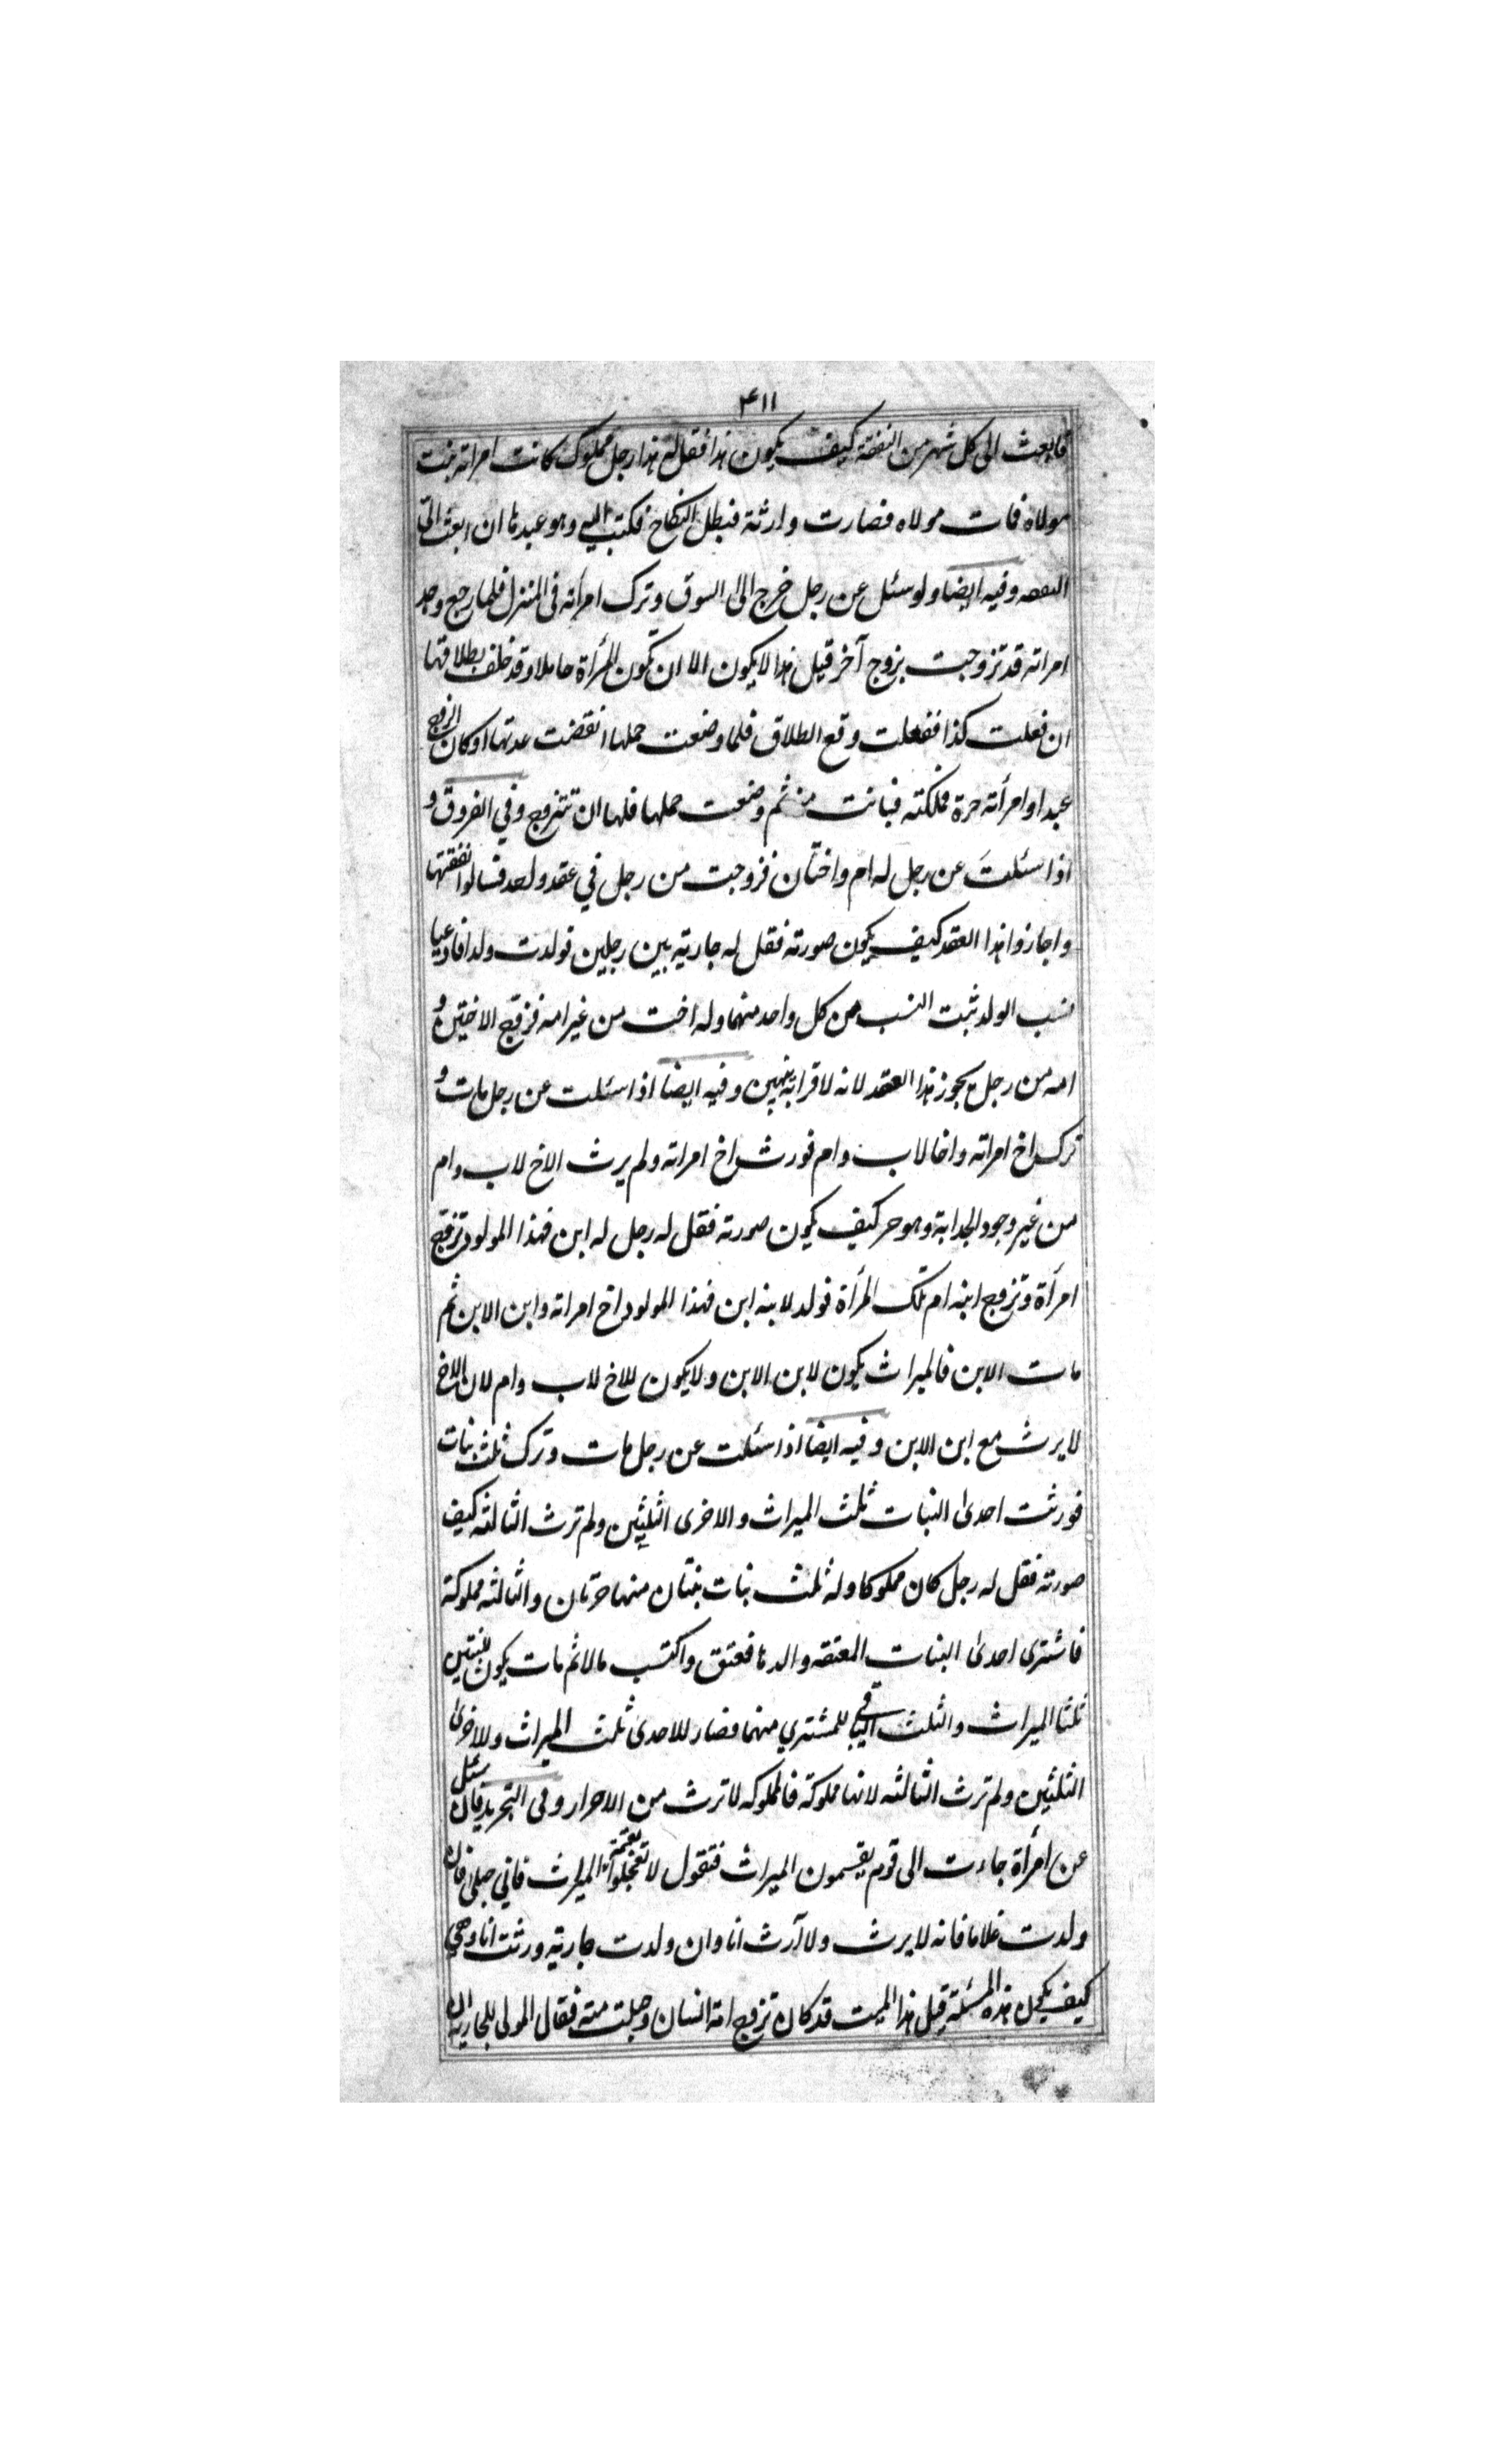 ۴۱۱
فابعث الى كل شهر من النفقة كيف يكون هذا فقل له هذا رجل مملوك كانت امراته بنت
مولاه فمات مولاه فصارت وارثة فبطل النكاح فكتب اليه وهو عبدنا ان ابعث الىّ
النفقه وفيه ايضا ولو سئل عن رجل خرج الى السوق وترك امرأته فى المنزل فلما رجع وجد
امراته قد تزوجت بزوج آخر قيل هذا لا يكون الا ان تكون المرأة حاملا وقد حلف بطلاقها
ان فعلت كذا ففعلت وقع الطلاق فلما وضعت حملها انقضت عدتها او كان الزوج
عبدا وامرأته حرة فملكته فبانت منه ثم وضعت حملها فلها ان تتزوج وفي الفروق و
اذا سئلتَ عن رجل له ام واختان فزوجت من رجل في عقد واحد
واجازوا هذا العقد كيف يكون صورته فقل له جارية بين رجلين فولدت ولدا فادعيا
نسب الولد ثبت النسب من كل واحد منهما وله اخت من غير امه فزوّج الاختين و
امه من رجل يجوز هذا العقد لانه لا قرابة بينهن وفيه ايضا اذا سئلت عن رجل مات و
ترك اخ امراته واخا لاب وام فورث اخ امراته ولم يرث الاخ لاب وام
من غير وجود الجدابة وهو حر كيف يكون صورته فقل له رجل له ابن فهذا المولود تزوّج
امرأة وتزوج ابنه ام تلك المرأة فولد لابنه ابن فهذا المولود اخ امراته وابن الابن ثم
مات الابن فالميراث يكون لابن الابن ولا يكون للاخ لاب وام لان الاخ
لا يرث مع ابن الابن وفيه ايضا اذا سئلت عن رجل مات وترك ثلث بنات
فورثت احدى البنات ثلث الميراث والاخرى الثلثين ولم ترث الثالثه كيف
صورته فقل له رجل كان مملوكا وله ثلث بنات بنتان منها حرتان والثالثه مملوكة
فاشترى احدى البنات المعتقه والدها فعتق واكتسب مالا ثم مات يكون للبنتين
ثلثا الميراث والثلث الباقي للمشتري منهما فصار للاحدى ثلث الميراث وللاخرى
الثلثين ولم ترث الثالثه لانها مملوكة فالمملوكه لا ترث من الاحرار وفى التجريد فان سئل
عن امرأة جاءت الى قوم يقسمون الميراث فتقول لا تعجلوا بقسمة الميراث فاني حبلى فان
ولدت غلاما فانه لا يرث ولا آرث انا وان ولدت جارية ورثت انا وهي
كيف يكون هذه المسئلة قيل هذا الميت قد كان تزوج امة انسان وحبلت منه فقال المولى للجارية ان